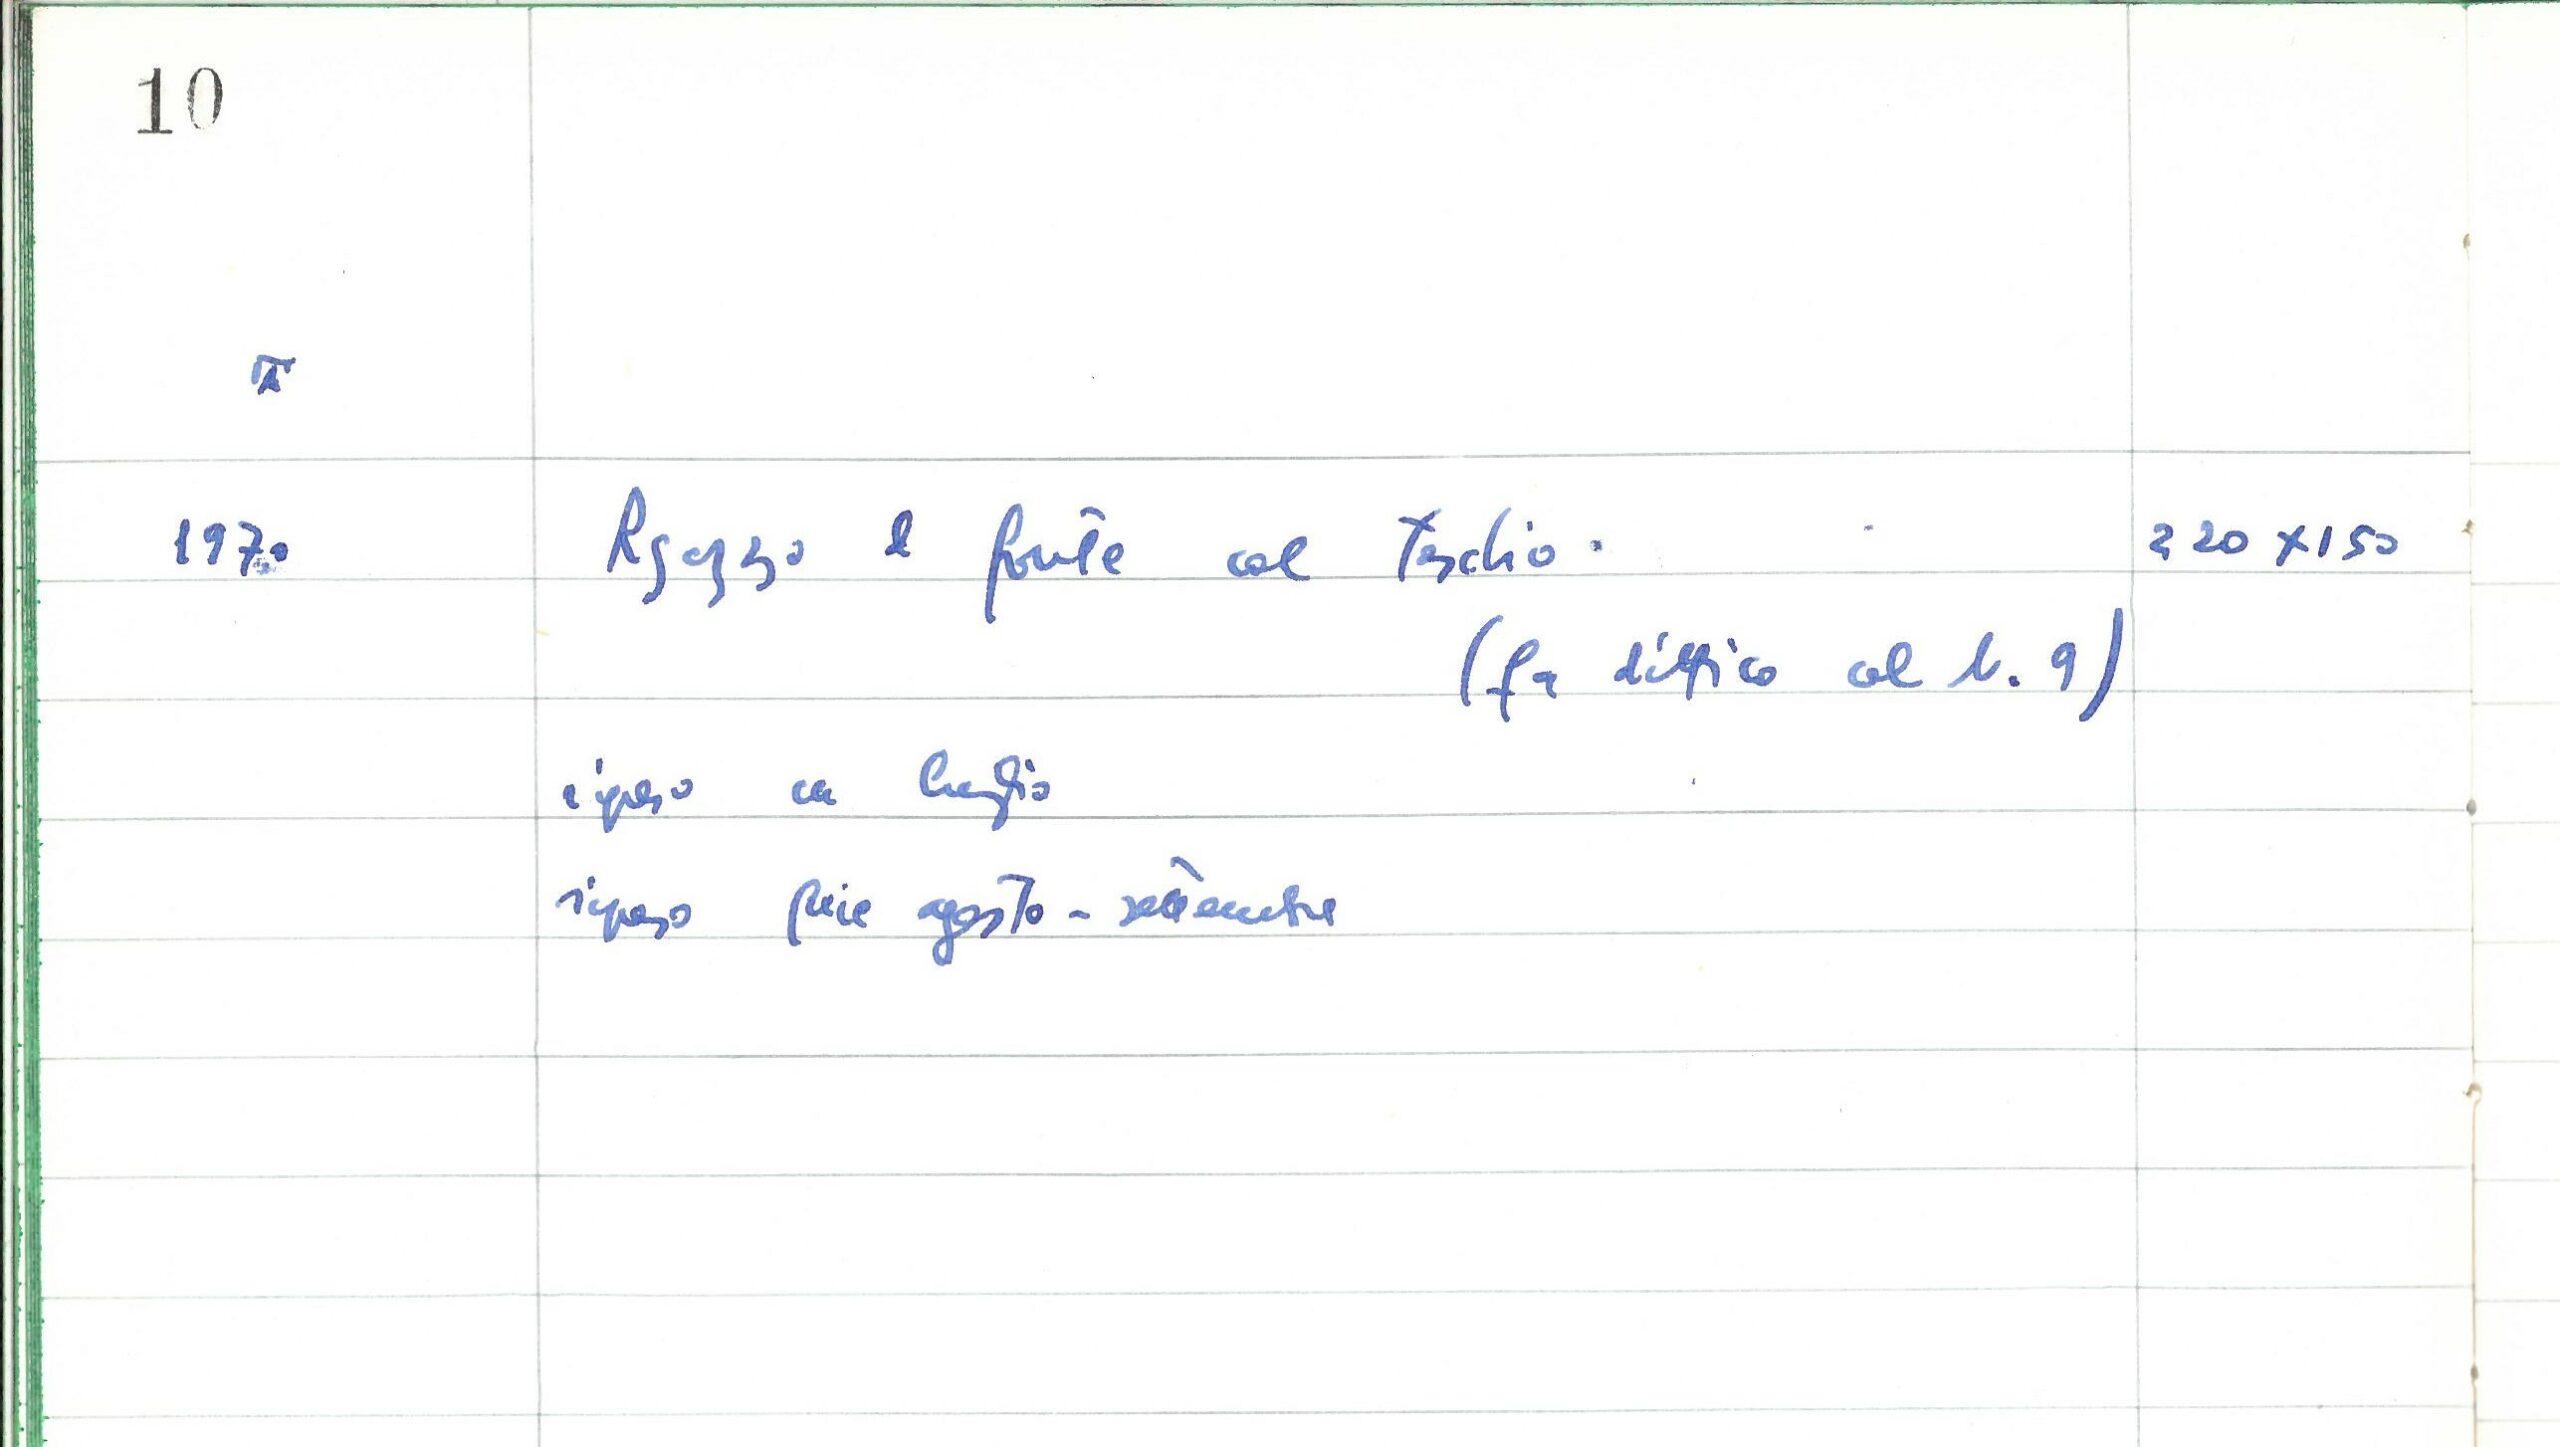 10
1970 Ragazzo di fronte col Teschio. 220 x 150
(fa dittico col N. 9)
ripreso in luglio
ripreso fine agosto - settembre